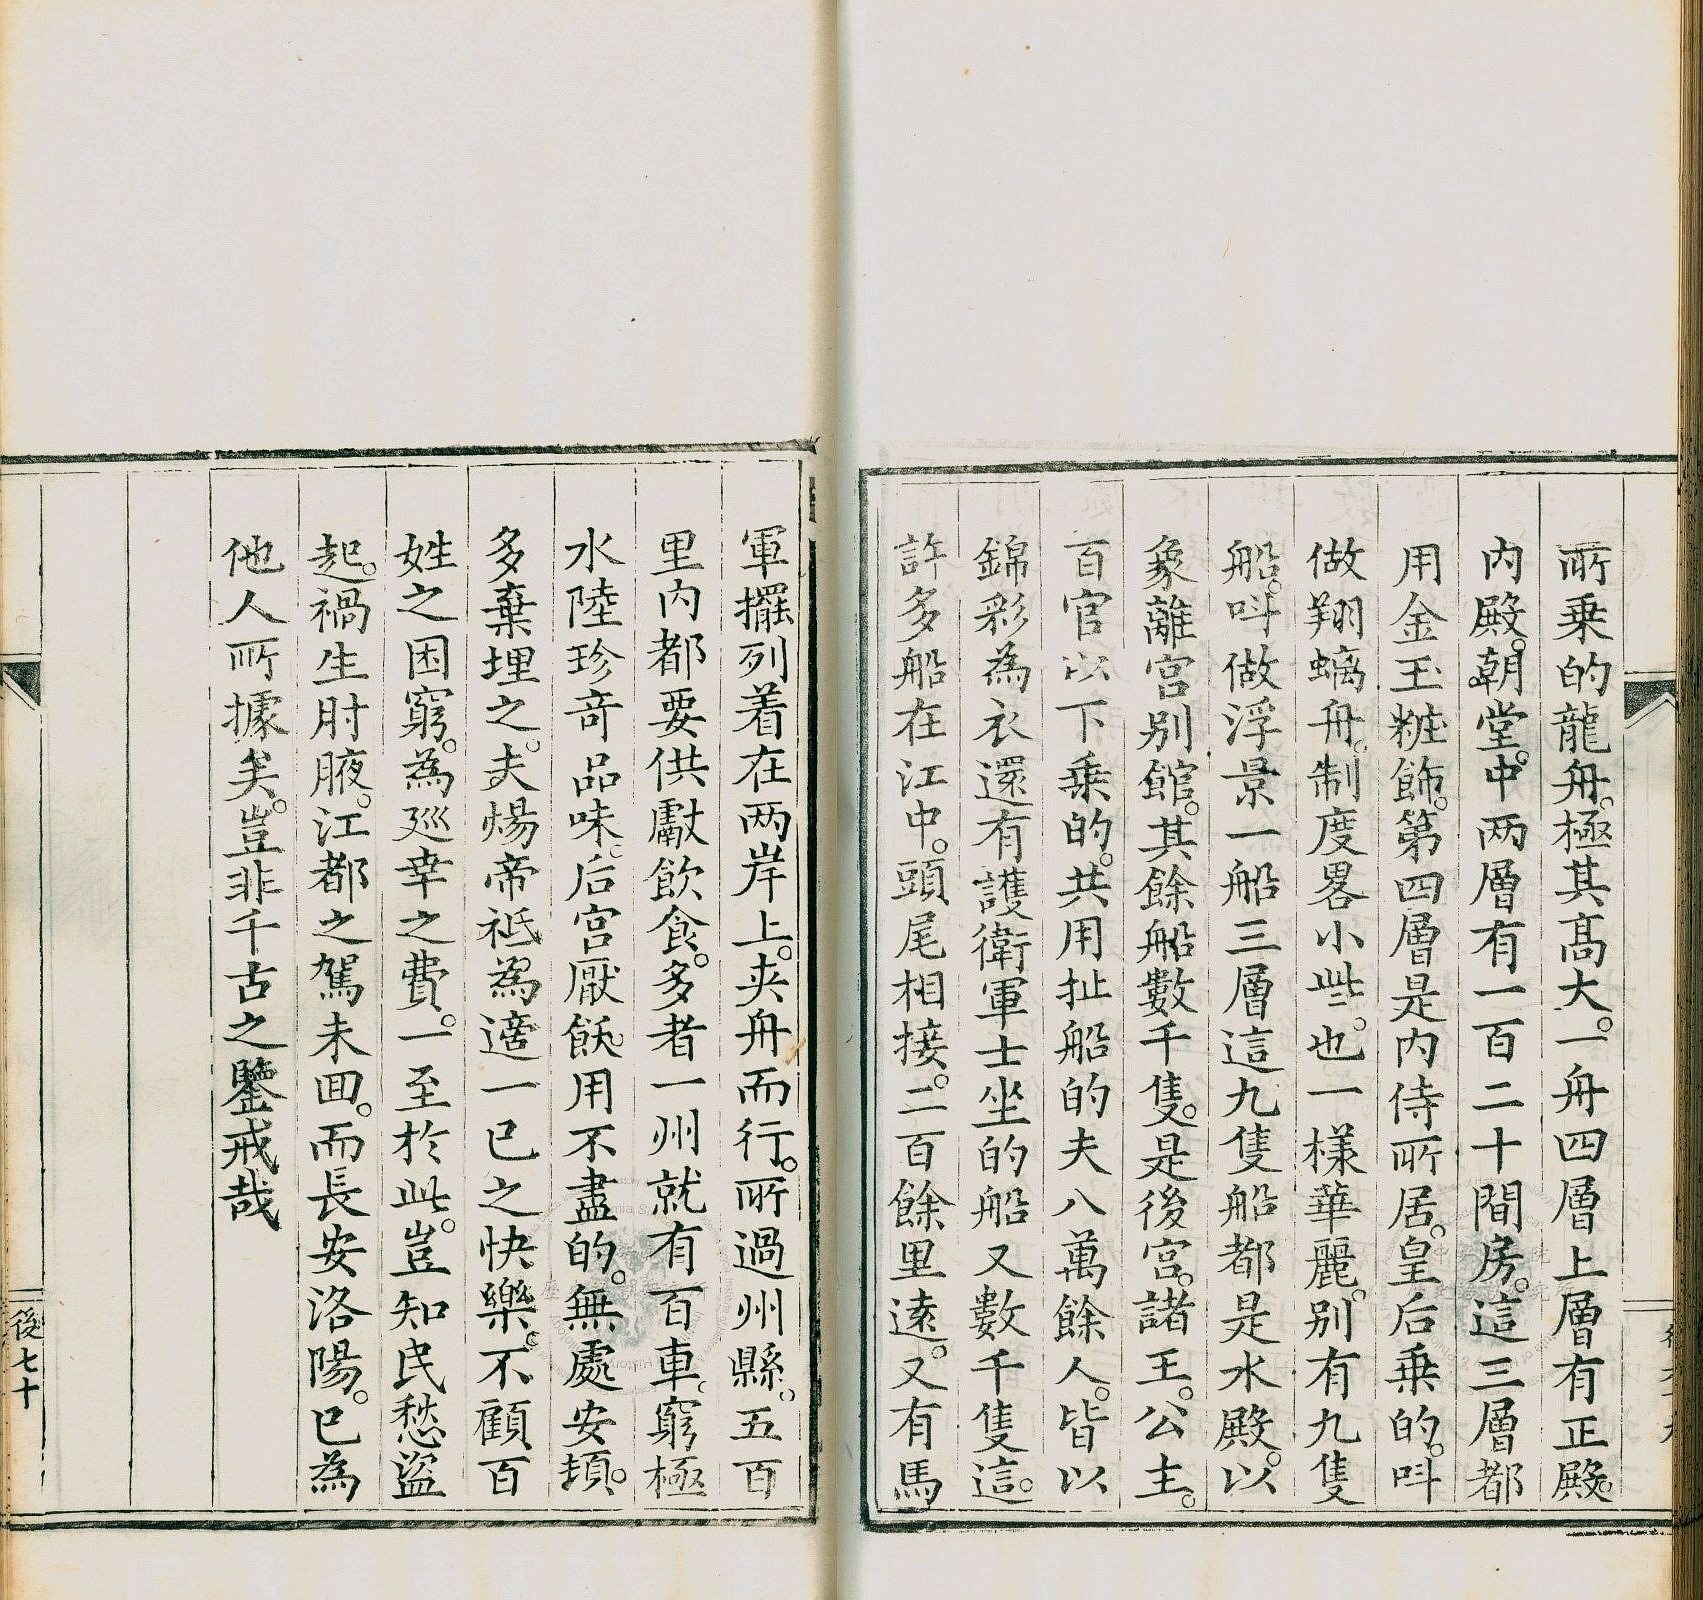 所乗的龍舟。極其高大。一舟四層上層有正殿。
内殿。朝堂。中两層有一百二十間房。這三層都
用金玉粧飾。第四層是内侍所居。皇后乗的。呌
做翔螭舟。制度畧小些。也一樣華麗。别有九隻
船。呌做浮景一船三層這九隻船都是水殿。以
象離宫别館。其餘船數千隻。是後宫。諸王。公主。
百官以下乗的。共用扯船的夫八萬餘人。皆以
錦彩為衣還有護衛軍士坐的船又數千隻這。
許多船在江中。頭尾相接。二百餘里遠。又有馬
軍擺列着在两岸上。夹舟而行。所過州縣。五百
里内都要供獻飲食。多者一州就有百車。窮極
水陸珍奇品味。后宫厭飫。用不盡的。無處安頓。
多棄埋之。夫煬帝衹為適一已之快樂。不顧百
姓之困窮。為廵幸之費。一至於此。豈知民愁盜
起。禍生肘腋。江都之駕未囬。而長安洛陽。已為
他人所據矣。豈非千古之鑒戒哉
後七十